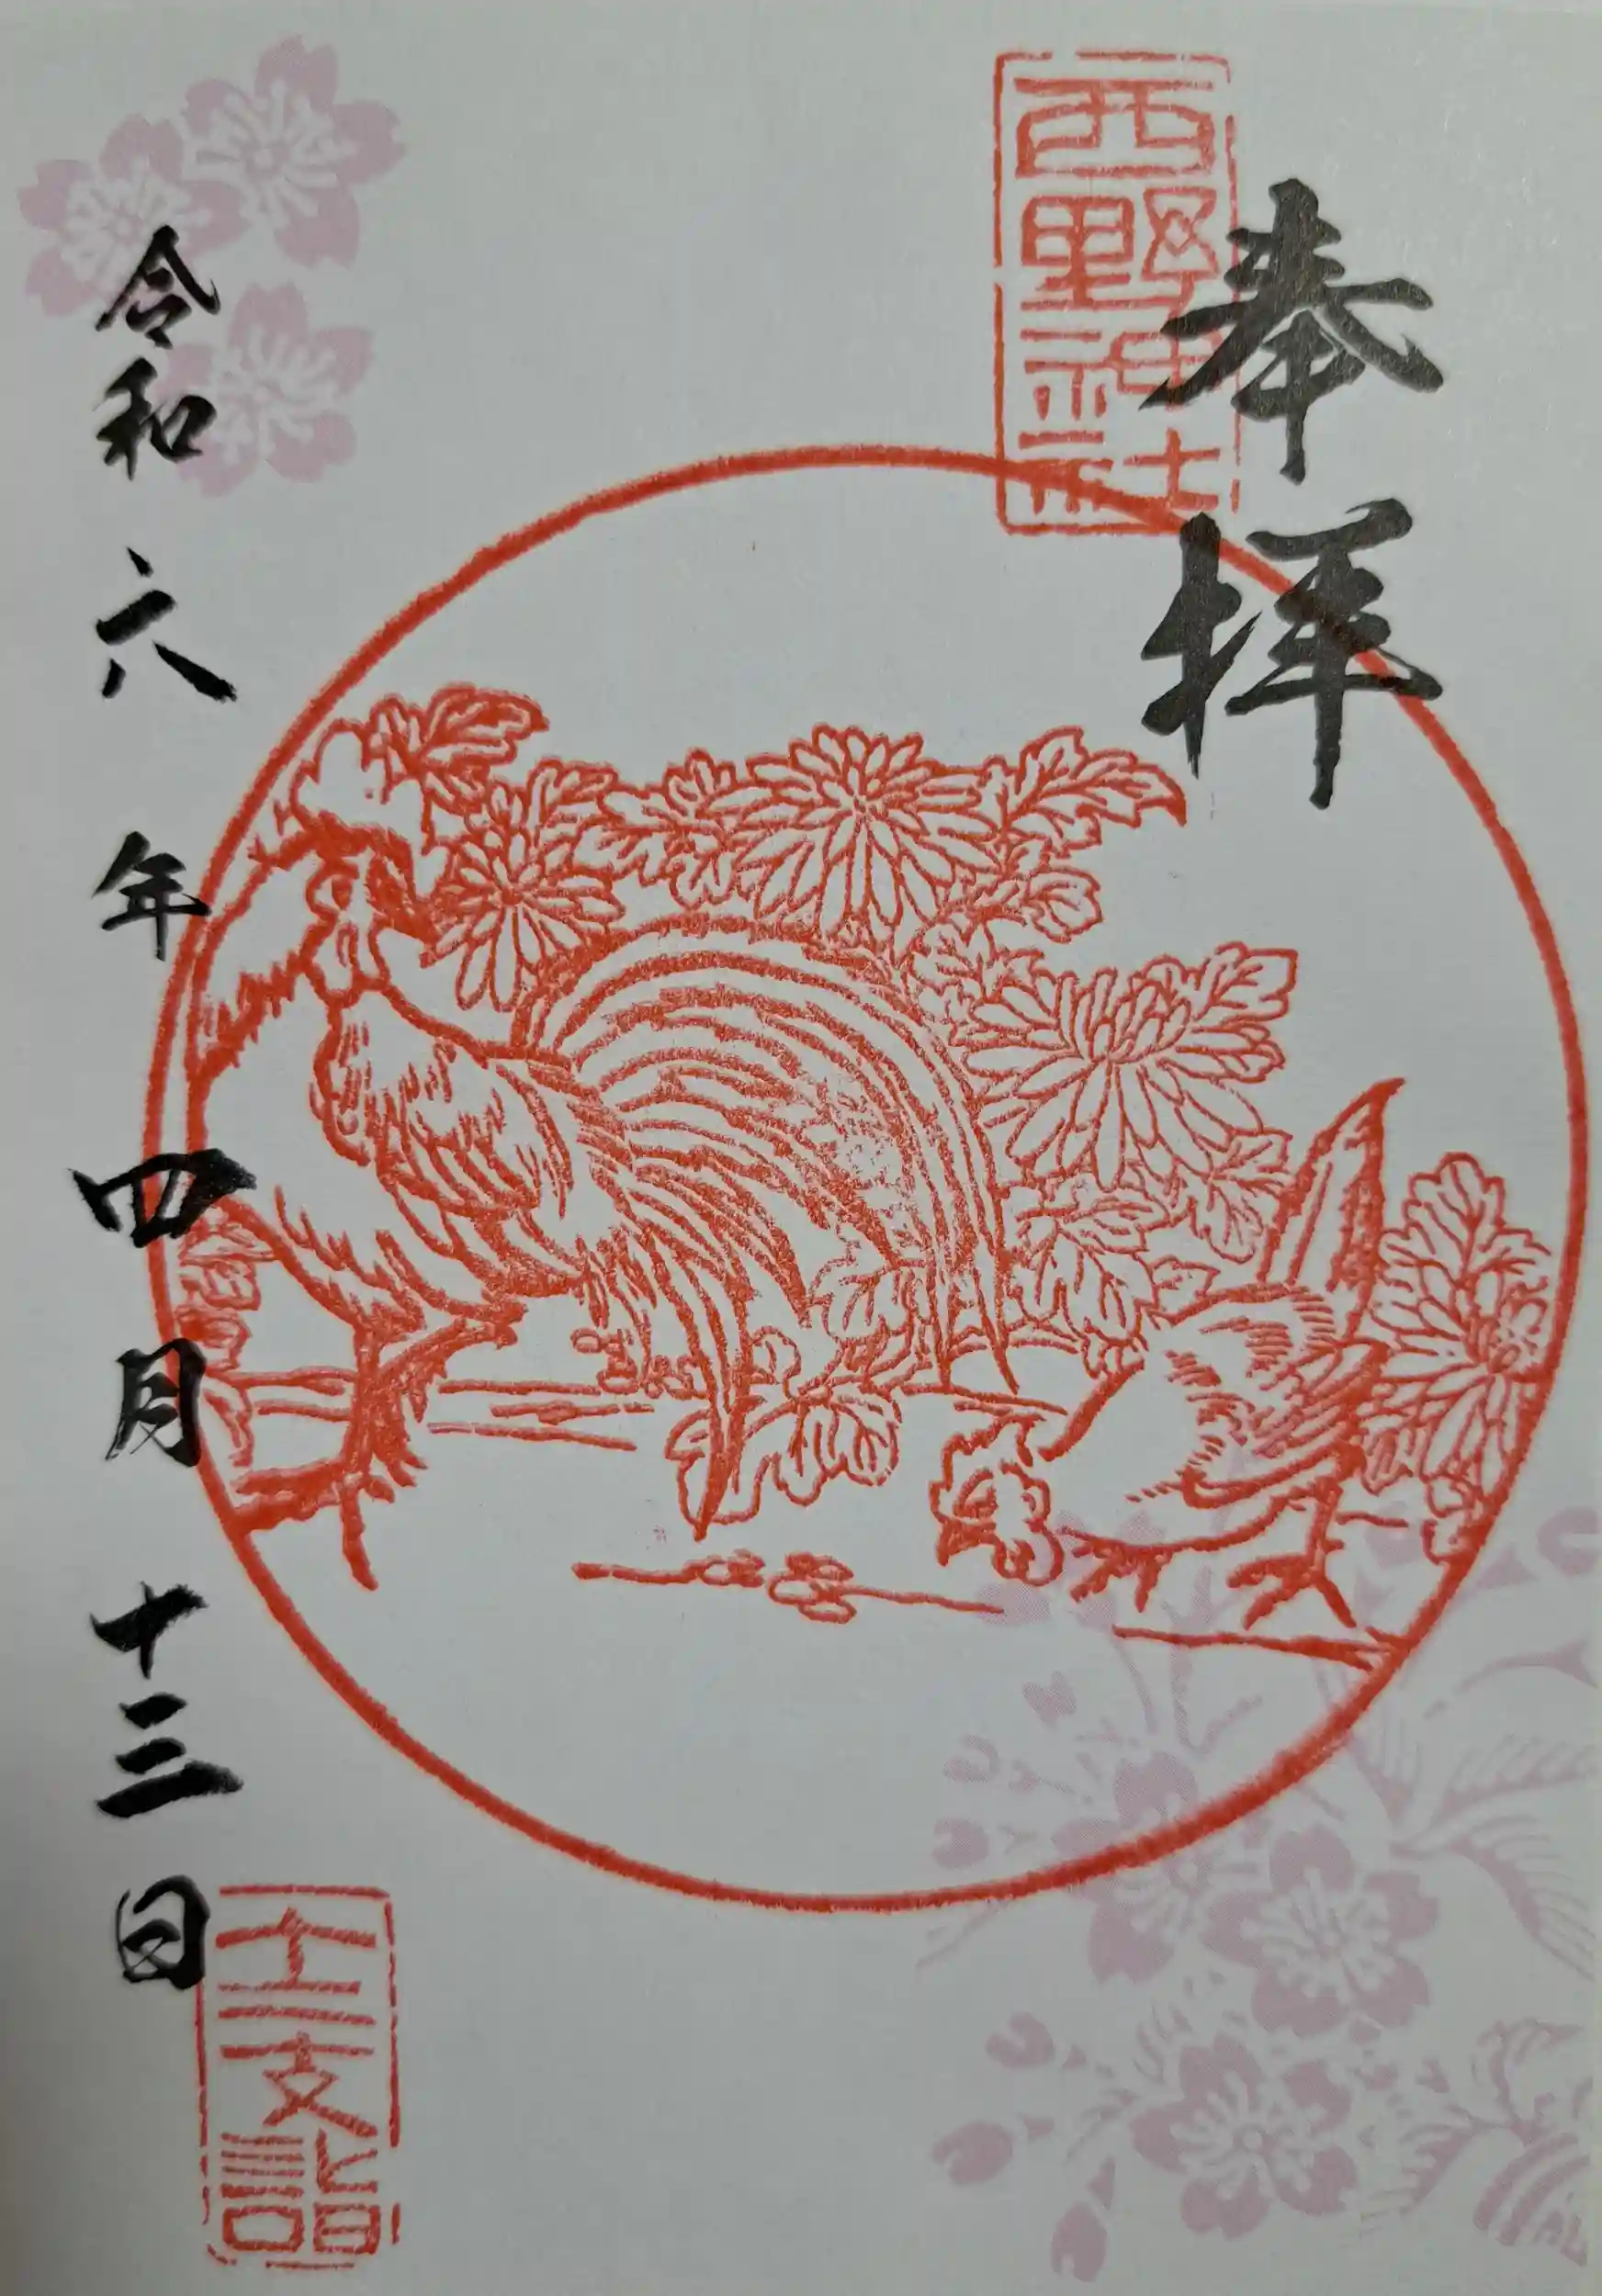 奉拝
西野神社
令和六年四月十三日
干支詣